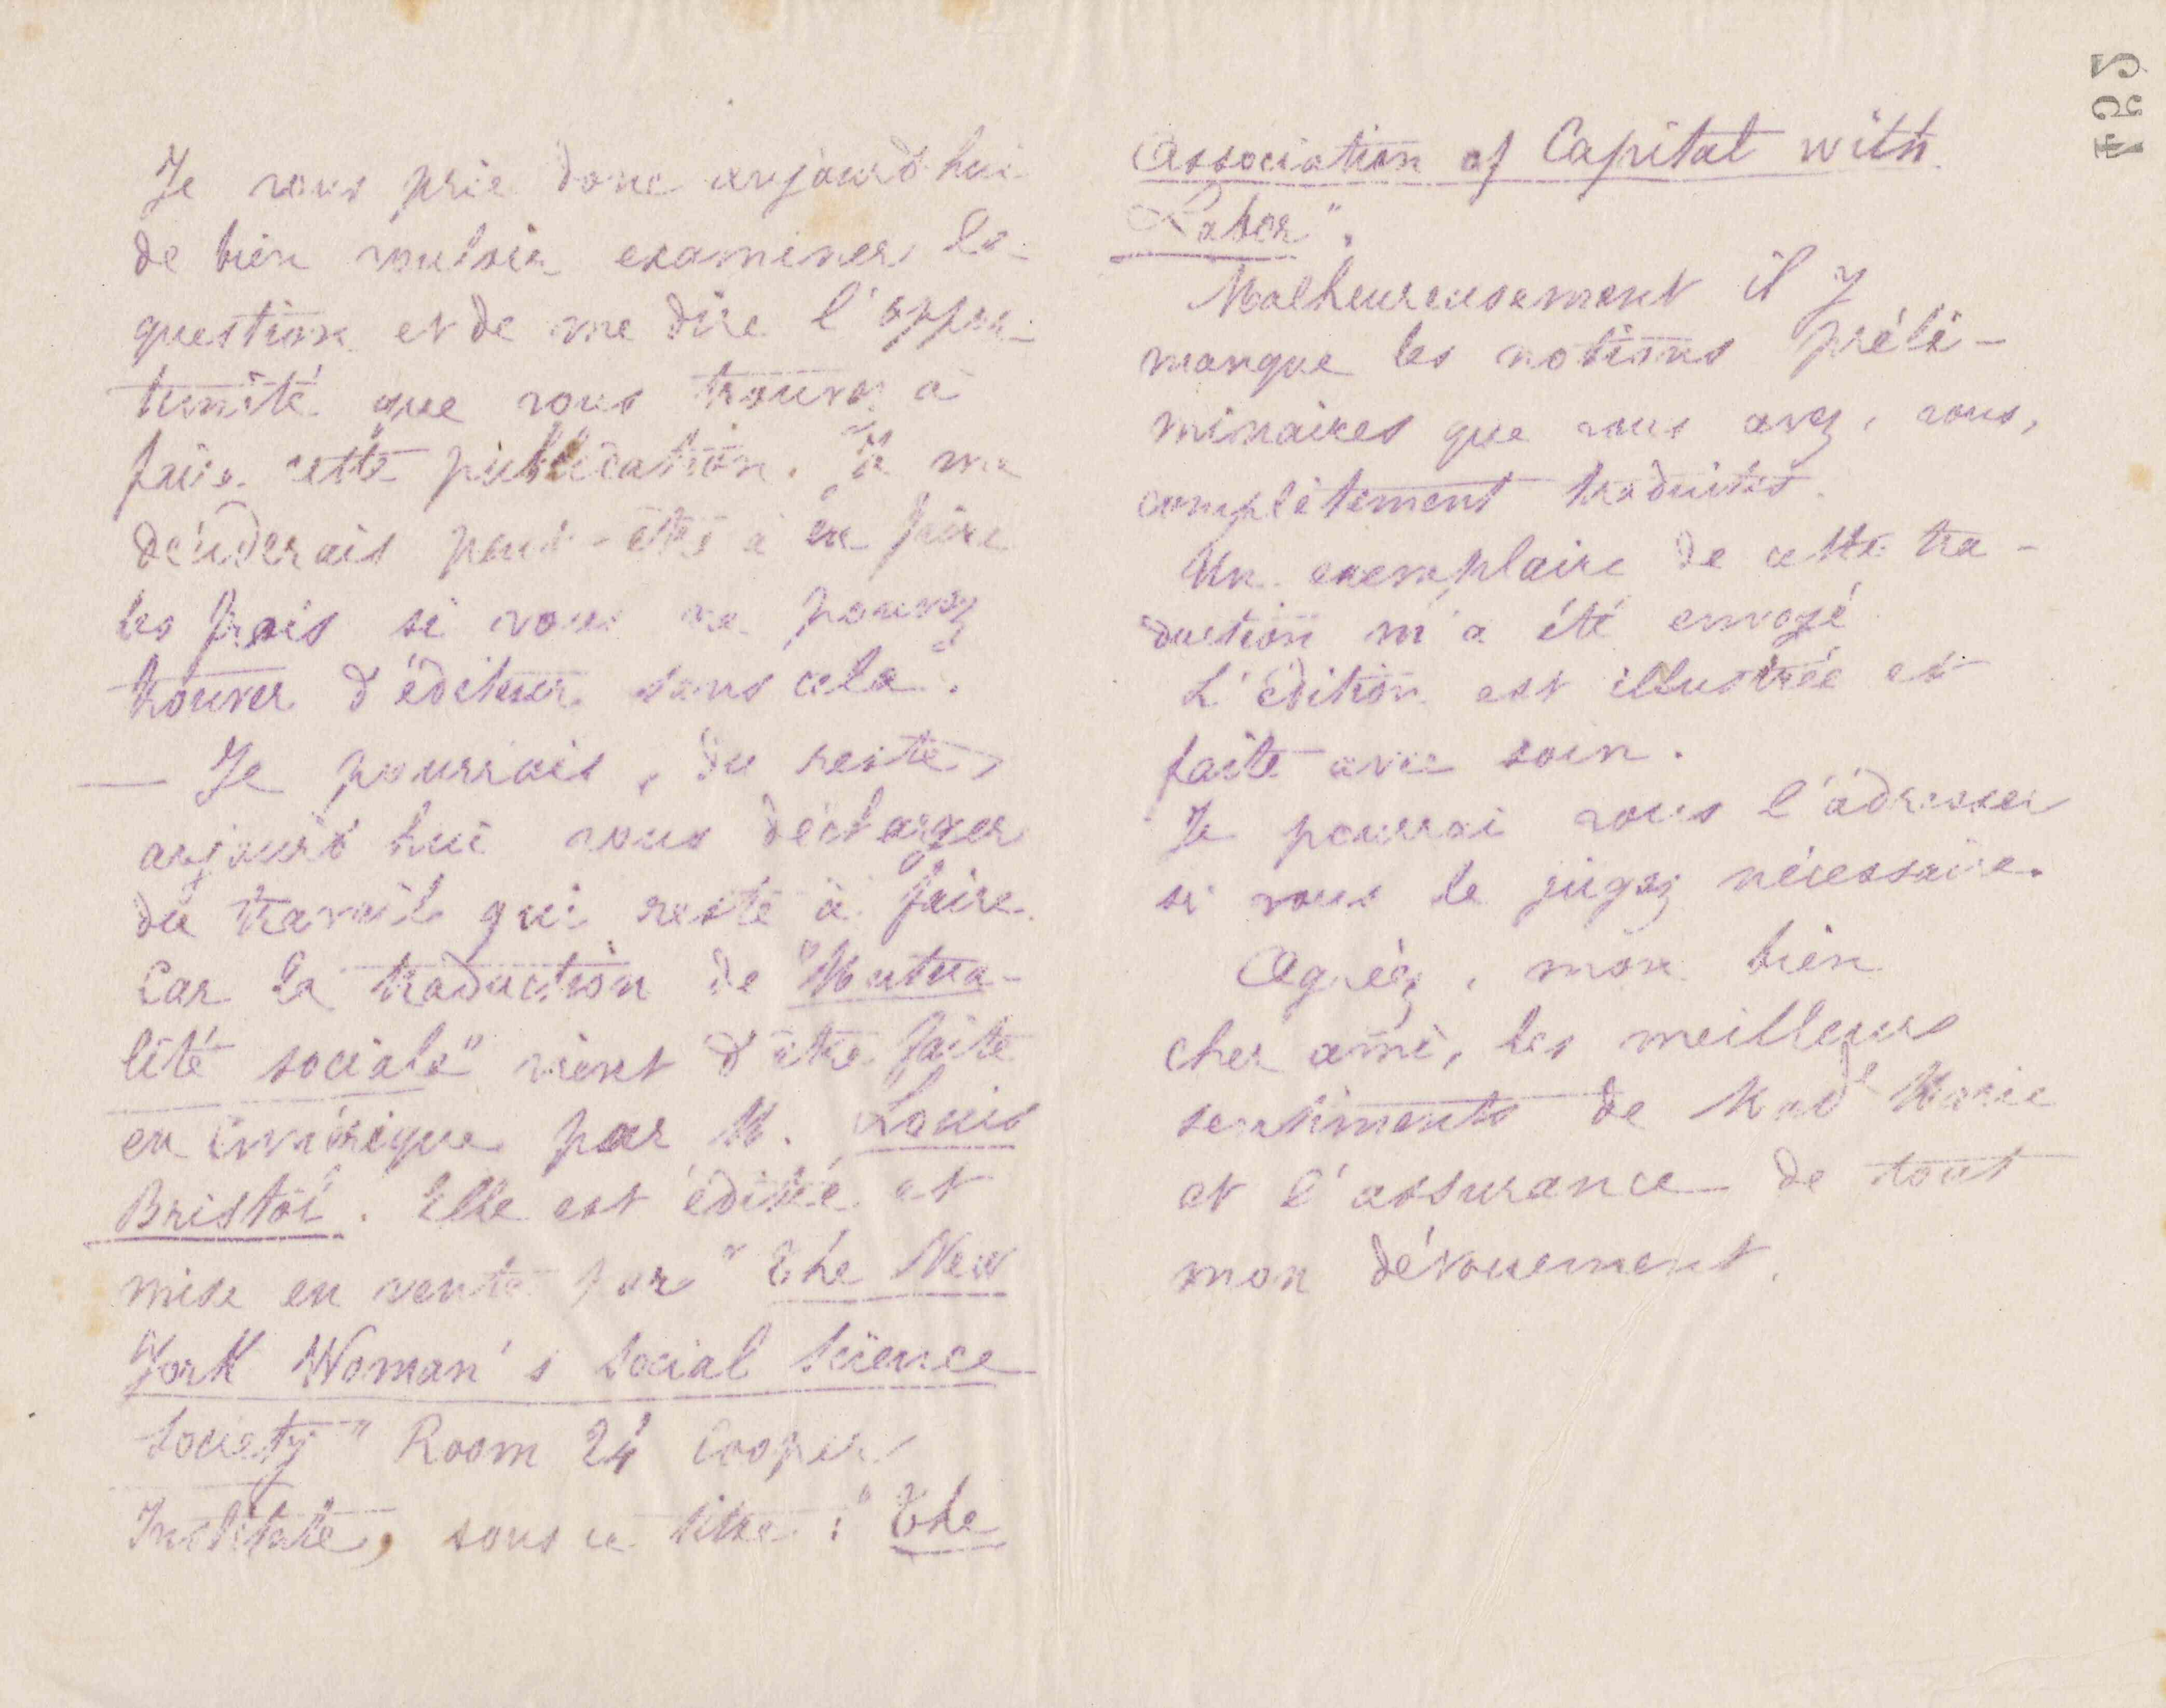 Je vous prie donc aujourd'hui
de bien vouloir examiner la
question et de me dire l'oppor-
tunité que vous trouvez à
faire cette publication. Je me
déciderais peut-être à en faire
les frais si vous ne pouvez
trouver d'éditeur sans cela.
— Je pourrais, du reste,
aujourd'hui vous décharger
du travail qui reste à faire.
Car la traduction de "Mutua-
lité sociale" vient d'être faite
en Amérique par M. Louis
Bristol. Elle est éditée et
mise en vente par "The New
York Woman's Social Science
Society" Room 24 Cooper
Institute, sous ce titre : "The
Association of Capital with
Labor".
Malheureusement il y
manque les notions préli-
minaires que vous avez, vous,
complètement traduites.
Un exemplaire de cette tra-
duction m'a été envoyé
L'édition est illustrée et
faite avec soin.
Je pourrai vous l'adresser
si vous le jugez nécessaire.
Agréez, mon bien
cher ami, les meilleurs
sentiments de Made Marie
et l'assurance de tout
mon dévouement.
254